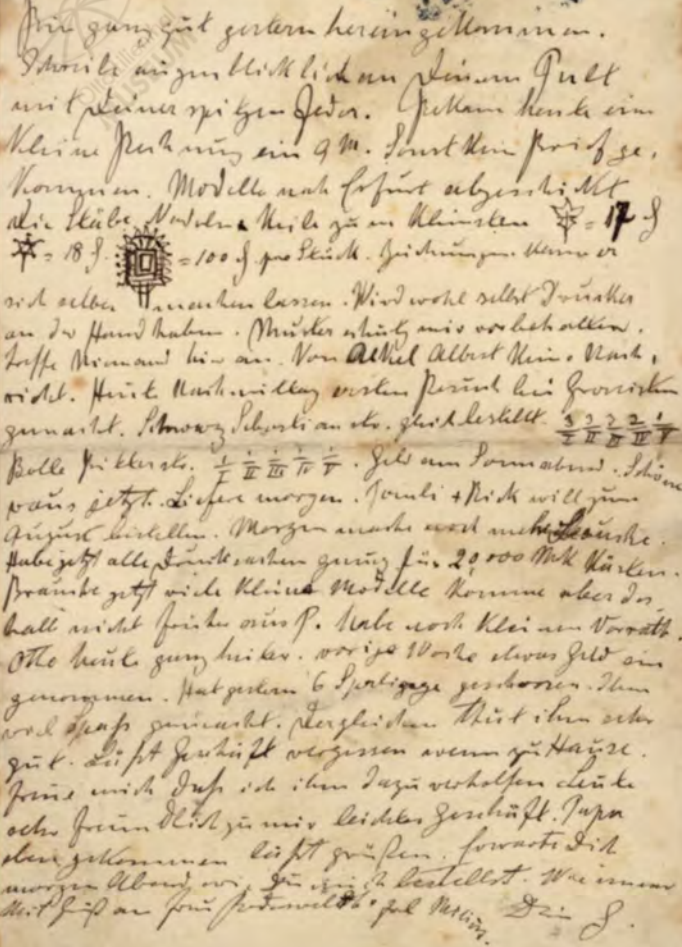 Bin ganz gut gestern hereingekommen.
Schreibe augenblicklich an Deinem Pult
mit Deiner spitzen Feder. Bekam heute eine
kleine Rechnung ein 9 M. Sonst kein Brief ge,
kommen. Modelle nach Erfurt abgeschickt
die Stäbe, Nadeln & Keile zu en Kleinsten = 17 ₰
= 18 ₰. = 100 ₰ pro Stück. Zeichnungen kann er
sich selber machen lassen. Wird wohl selbst Drucker
an der Hand haben. Musterschutz mir vorbehalten.
treffe Niemand hier an. Von Onkel Albert keine Nach,
richt. Heute Nachmittag ersten Besuch bei Grossisten
gemacht. Schwarz Sebastian etc. gleich bestellt. 3/I 3/II 2/III 2/IIII 1/V
Bolle 1/I 1/II 1/III 1/IV 1/V. Geld am Sonnabend. Schöne
raus jetzt. Liefere morgen. + Rick will zum
August bestellen. Morgen mache noch mehr Besuche.
Habe jetzt alle Drucksachen genug für 20,000 Mk Kästen.
Brauche jetzt viele kleine Modelle komme aber des
halb nicht früher aus P. habe noch kleinen Vorrath.
Otto heute ganz heiter. vorige Woche etwas Geld ein
genommen. Hat gestern 6 geschossen. Ihm
viel Spaß gemacht. Dergleichen thut ihm sehr
gut. Läßt Geschäft vergessen wenn zu Hause.
freue mich daß ich ihm dazu verholfen Leute
sehr freundlich zu mir leichtes Geschäft. Papa
eben gekommen läßt grüßen. Erwarte Dich
morgen Abend wie Du bestellst.
Mit Gruß an Frau Dein G.